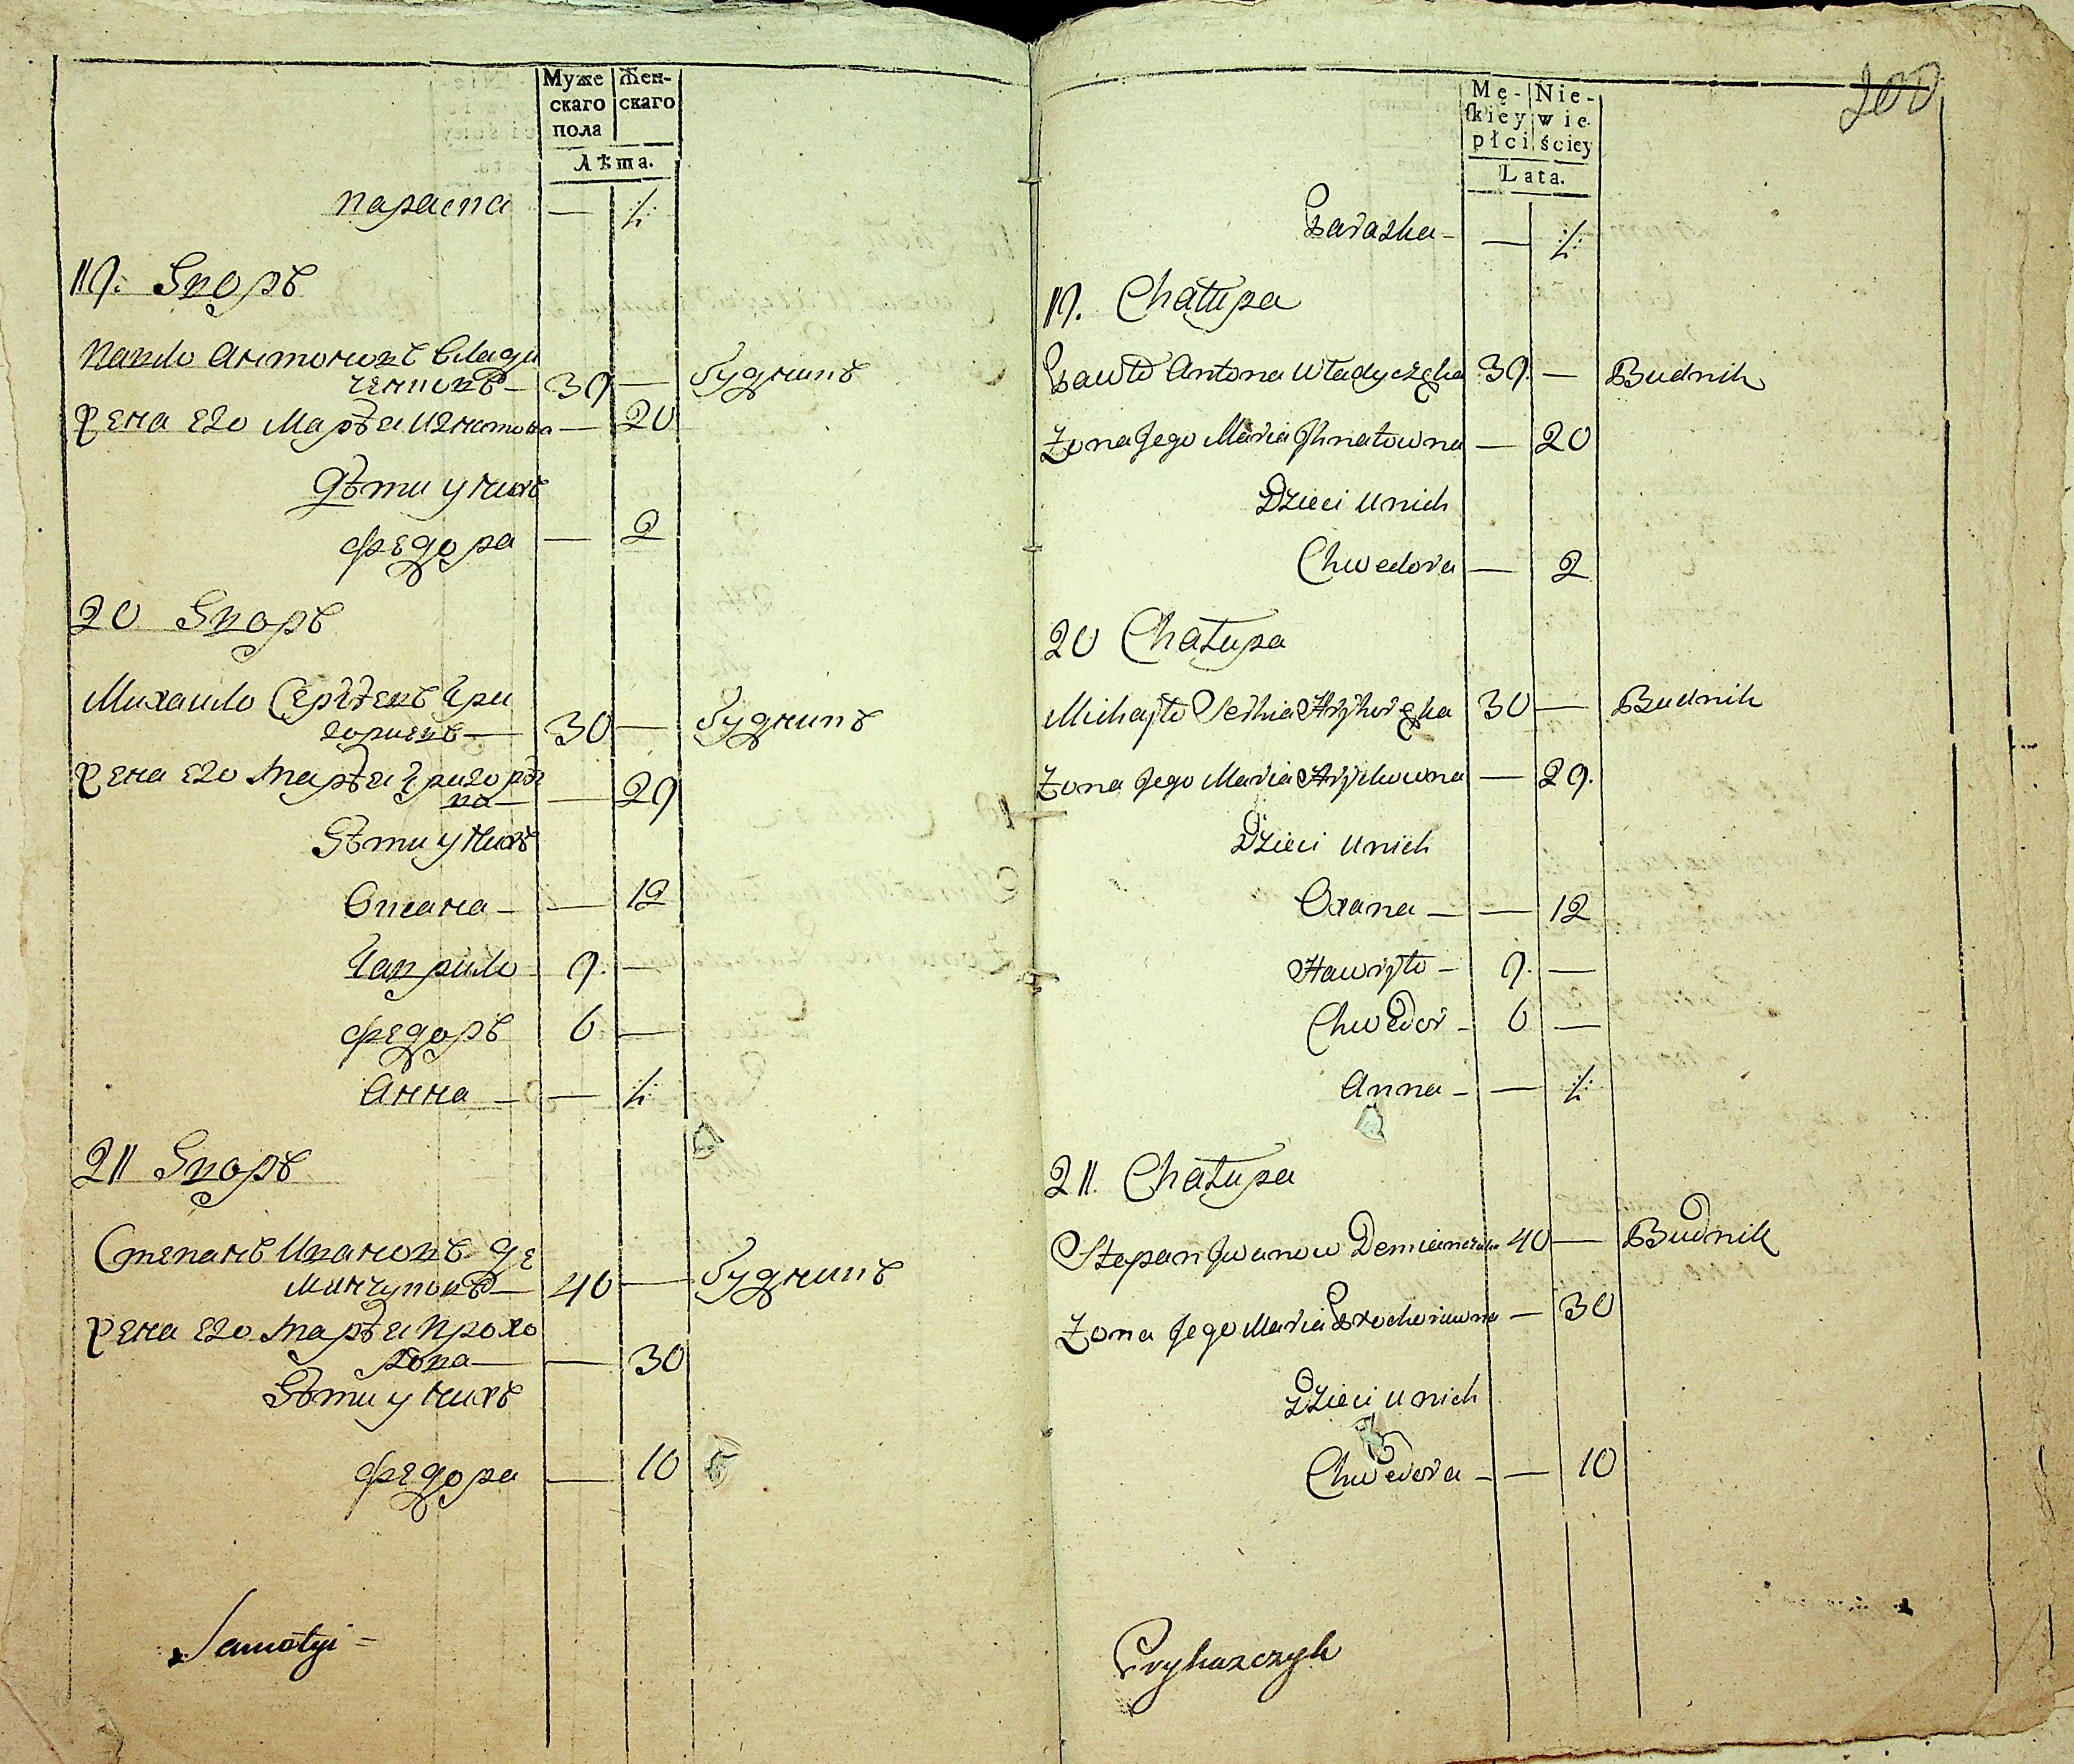 Муже Жен-
скаго скаго
пола
Лѣта.
Параска — ·/·
19. Дворъ
Павло Антоновъ Влади
ченковъ — 39 — будникъ
Жена его Марѣя Игнатова — 20
Дѣти у нихъ
Федора — 2
20 Дворъ
Михайло Сергѣевъ Гри
гориевъ — 30 — будникъ
Жена его Марѣя Григорѣе
ва — — 29
Дѣти у нихъ
Оксана — — 12
Гаврило 9. —
Федоръ 6 —
Анна — — ·/·
21 Дворъ
Степанъ Ивановъ Де
мянчуковъ — 40 — будникъ
Жена его Марѣя Прохо
рова — — 30
Дѣти у нихъ
Федора — 10
Samotyi =
200
Mę- Nie-
ſkiey wie
płci ściey
Lata.
Paraska — — ·/·
19. Chałupa
Pawło Antona Władyczęka 39. — Budnik
Żona Jego Maria Ihnatowna — 20
Dzieci u nich
Chwedora — 2
20 Chałupa
Michayło Serhia Hryhoręka 30 — Budnik
Żona Jego Maria Hryhowna — 29.
Dzieci u nich
Oxana — — 12
Hawryło — 9. —
Chwedor — 6 —
Anna — — ·/·
21. Chałupa
Stepan Iwanow Demianczuk 40 — Budnik
Żona Jego Maria Prochorowna — 30
Dzieci u nich
Chwedora — — 10
Prykazczyk